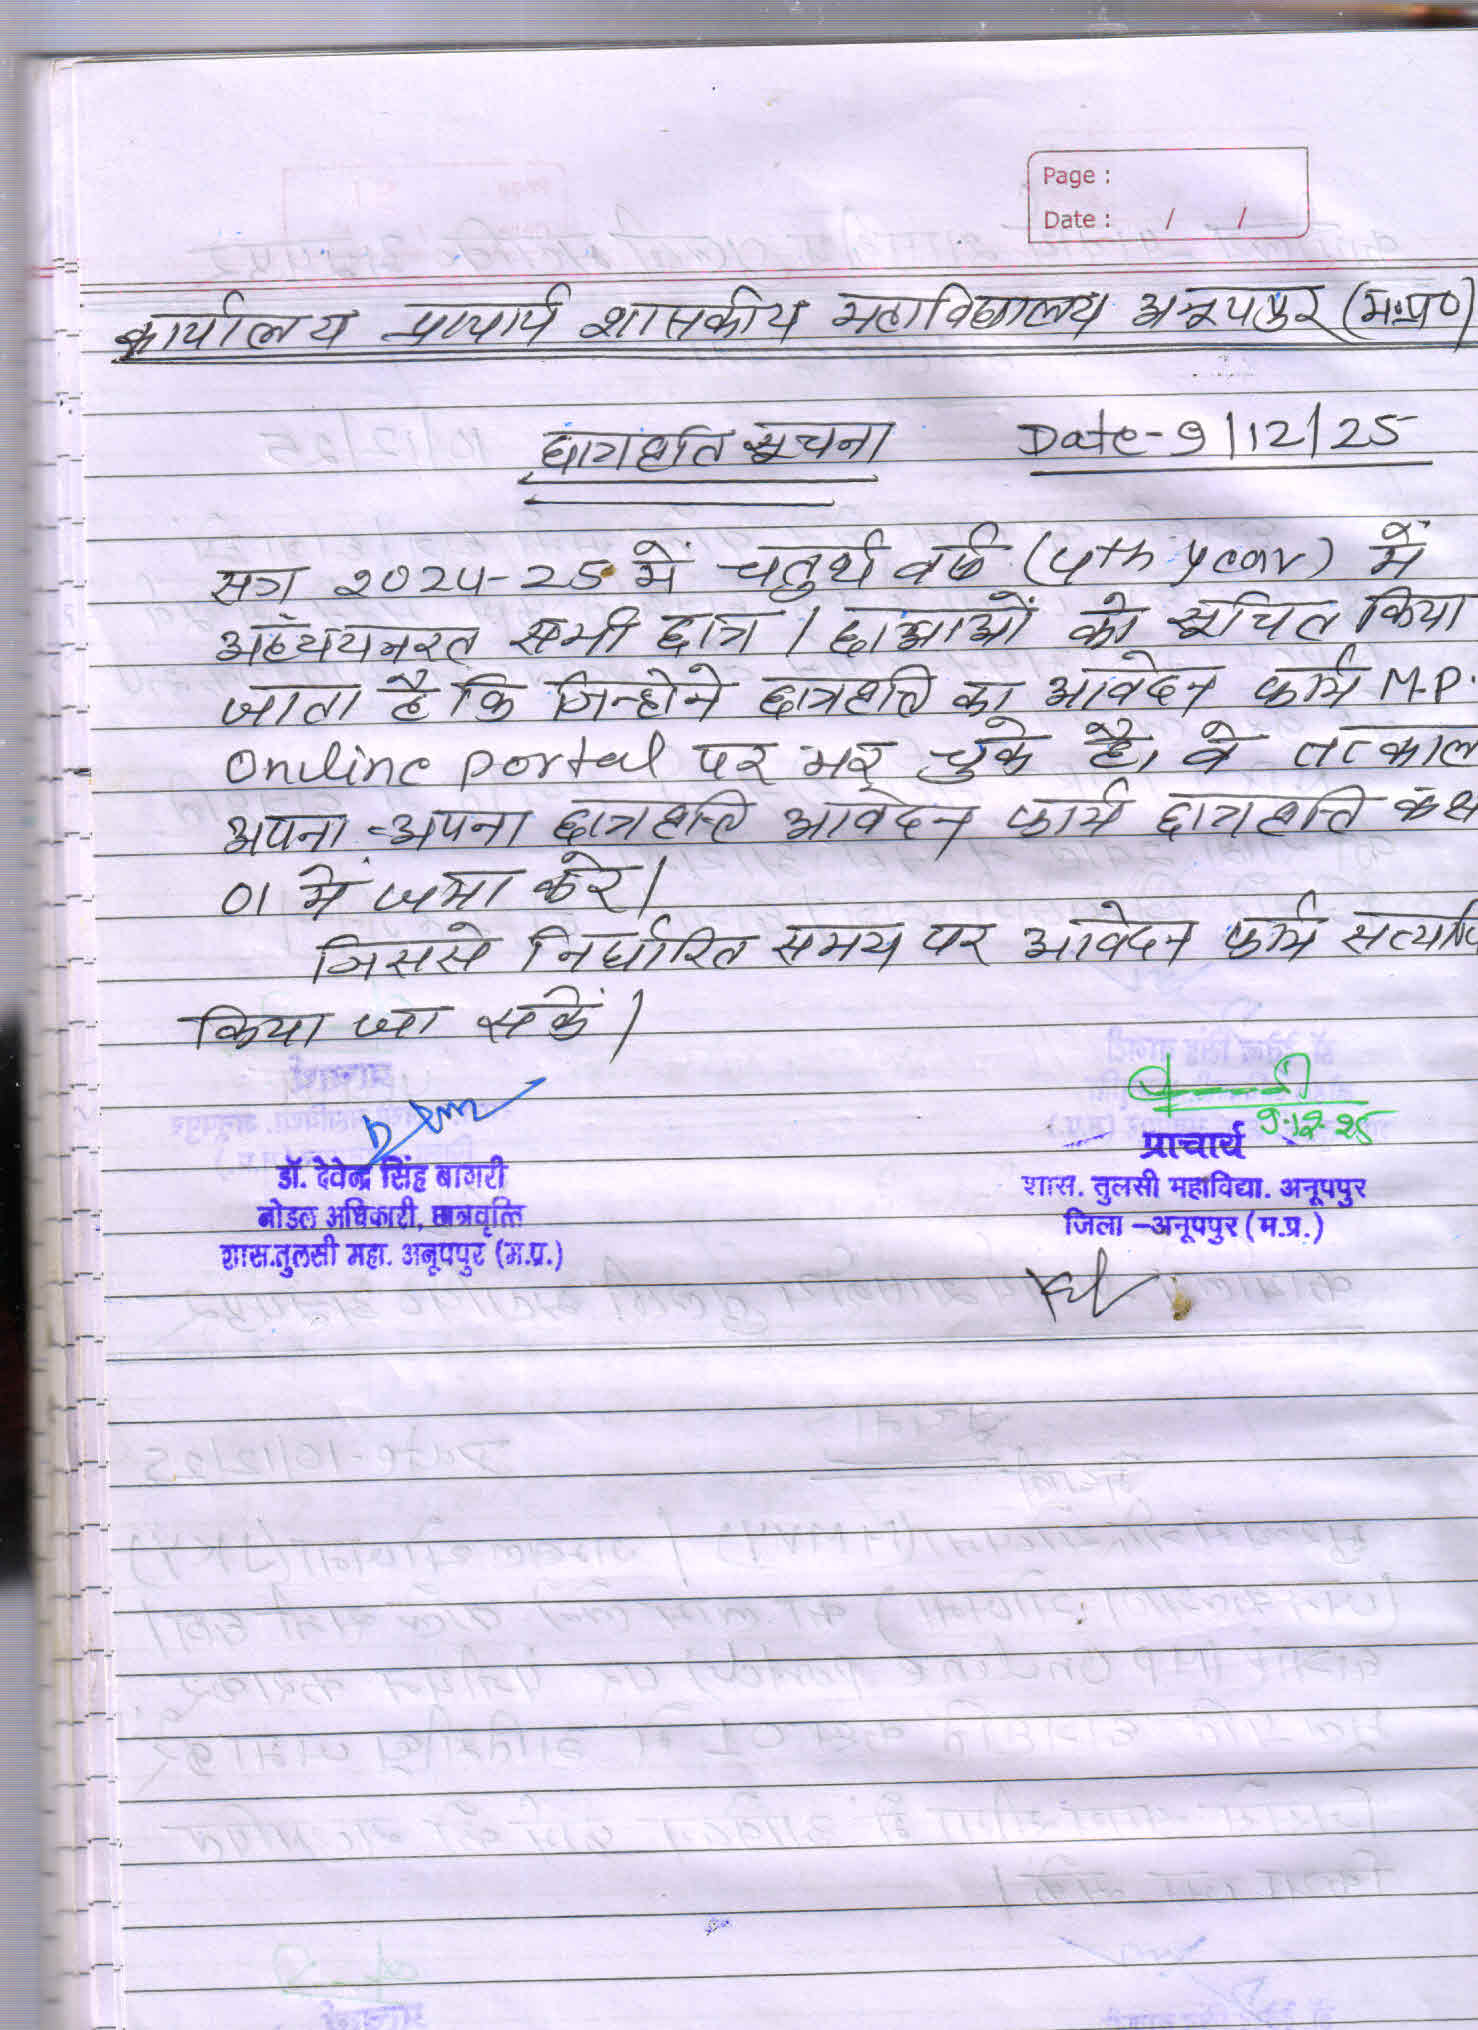 Page :
Date : / /
कार्यालय प्राचार्य शासकीय महाविद्यालय अनूपपुर (म.प्र०)
छात्रवृत्ति सूचना Date-9/12/25
सत्र 2024-25 में चतुर्थ वर्ष (4th year) में
अध्ययनरत सभी छात्र / छात्राओं को सूचित किया
जाता है कि जिन्होने छात्रवृत्ति का आवेदन फार्म M.P.
Online portal पर भर चुके है, वे तत्काल
अपना-अपना छात्रवृत्ति आवेदन फार्म छात्रवृत्ति कक्ष
01 में जमा करे।
जिससे निर्धारित समय पर आवेदन फार्म
किया जा सकें।
9.12.25
डॉ. देवेन्द्र सिंह बागरी
नोडल अधिकारी, छात्रवृत्ति
शास.तुलसी महा. अनूपपुर (म.प्र.)
प्राचार्य
शास. तुलसी महाविद्या. अनूपपुर
जिला -अनूपपुर (म.प्र.)